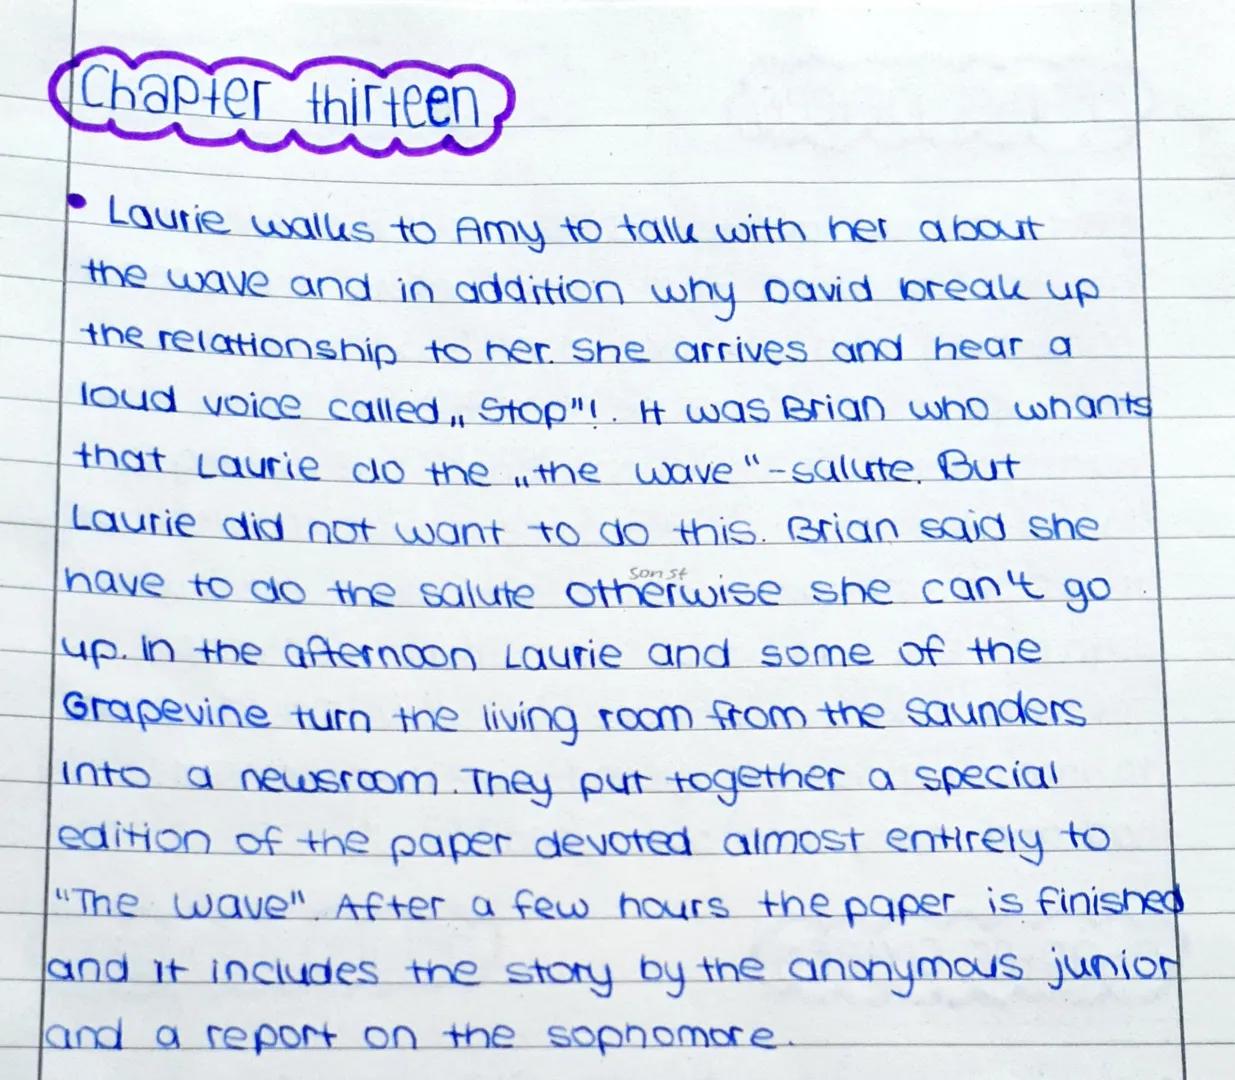 Chapter thirteen
• Laurie walks to Amy to talk with her about
the wave and in addition why David break up
the relationship to her. She arrives and hear a
loud voice called „Stop"!. It was Brian who whants
that Laurie do the „the wave"-salute. But
Laurie did not want to do this. Brian said she
sonst
have to do the salute otherwise she can't go
up. In the afternoon Laurie and some of the
Grapevine turn the living room from the Saunders
into a newsroom. They put together a special
edition of the paper devoted almost entirely to
"The wave". After a few hours the paper is finished
and it includes the story by the anonymous junior
and a report on the sophomore.